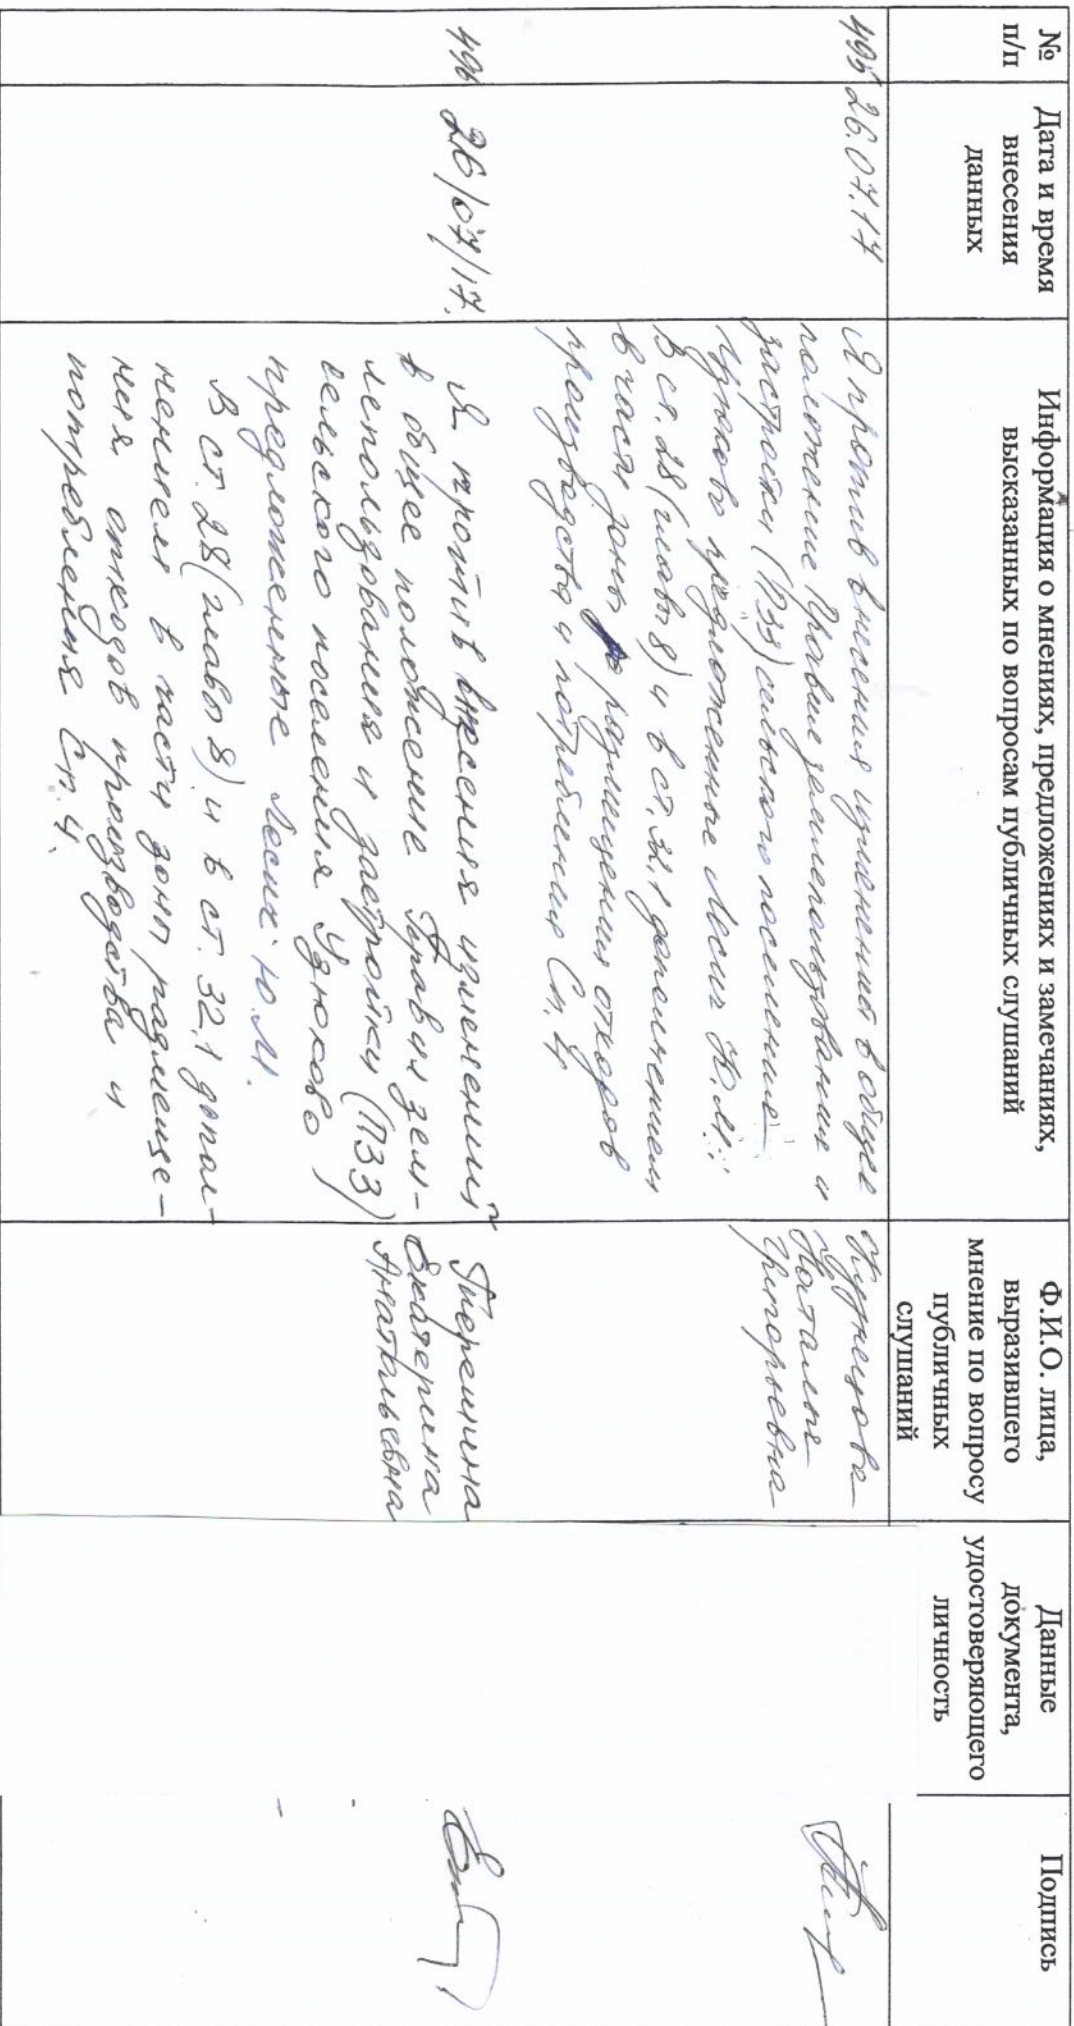 № п/п
Дата и время внесения данных
Информация о мнениях, предложениях и замечаниях, высказанных по вопросам публичных слушаний
Ф.И.О. лица, выразившего мнение по вопросу публичных слушаний
Данные документа, удостоверяющего личность
Подпись
495
26.07.17
Я против внесения изменений в общее
положение Правил землепользования и
застройки (ПЗЗ) сельского поселения
предложенные Лесик Ю.М.
В ст. 28 (главы 8) и в ст. 32.1 дополнением
в части зоны размещения отходов
производства и потребления Сп.4
Наталья
Григорьевна
496
26/07/17.
Я против внесения изменений
в общее положение Правил зем-
лепользования и застройки (ПЗЗ)
сельского поселения Узюково
предложенные Лесик Ю.М.
В ст. 28 (главы 8) и в ст. 32.1 допол-
нением в части зоны размеще-
ния отходов производства и
потребления Сп.4.
Екатерина
Анатольевна